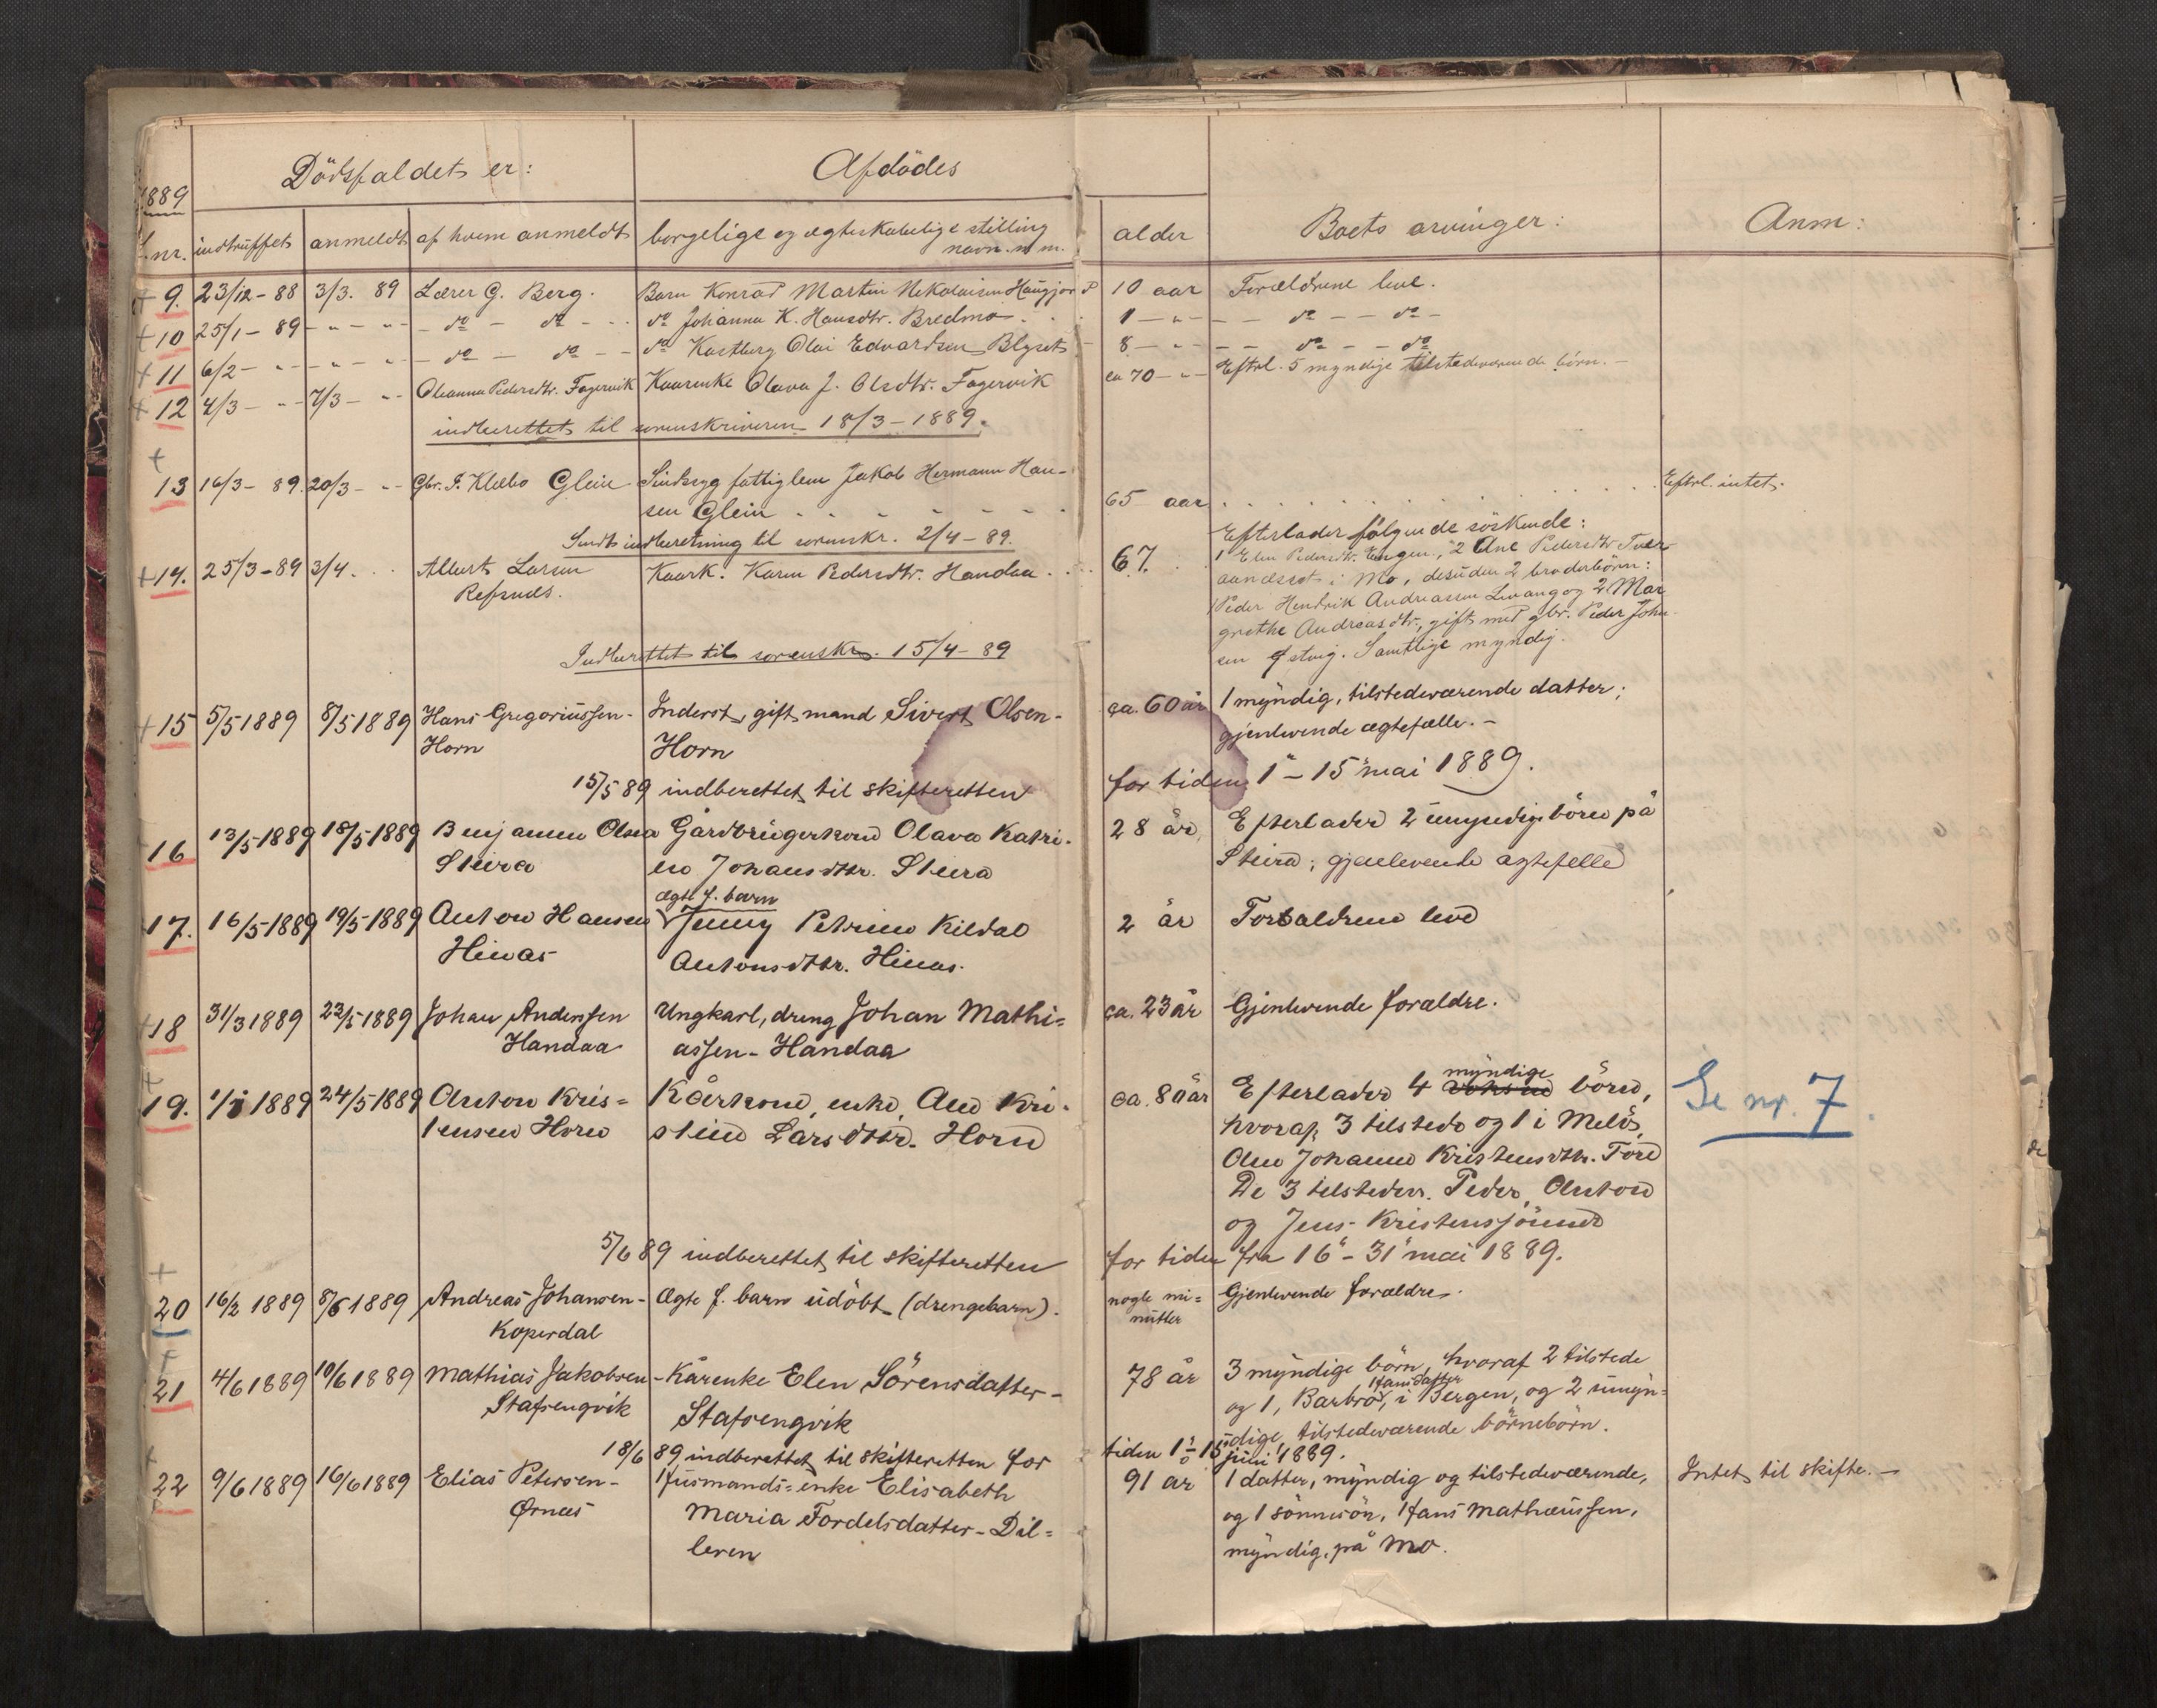 1889
Dödsfaldet er: Afdödes
nr. indtruffet anmeldt af hvem anmeldt borgelige og ægteskabelige stilling navn m m. alder Boets arvinger: Anm:
+ 9. 23/12-88 3/3. 89 Lærer G. Berg. Barn Konrad Martin Nikolaisen Haugjord 10 aar Forældrene leve.
+ 10 25/1-89 - " - " - do - do - do Johanna K. Hansdtr. Bredmo 1 - " - - do - - do -
+ 11 6/2 - " - " - " - do - do - do Kastberg Olai Edvardsen Blyset 8 - " - - do - - do
+ 12 4/3 - " 7/3 - " Oleanna Pedersdtr. Fagervik Kaarenke Olava J. Olsdtr. Fagervik ca 70 - " - Eftrl. 5 myndige tilstedeværende börn. -
indberettet til sorenskriveren 18/3-1889.
+
13 16/3-89. 20/3 - " Gbr. P. Klæbo Glein Sindsyg fattiglem Jakob Hermann Han-
sen Glein 65 aar Eftrl. intet.
Sendt indberetning til sorenskr. 2/4-89.
Efterlader følgende söskende:
+ 14. 25/3-89 3/4. Albert Larsen Kaark. Karen Pedersdtr. Handaa 67. 1 Elen Pedersdtr. Engen, 2 Ane Pedersdtr. Tver
Refsnes. aaneset i Mo, desuden 2 broderbörn:
1 Peder Hendrik Andreassen Levang og 2 Mar
grethe Andreasdtr., gift med gbr. Peder Johan
sen Ystvig. Samtlige myndig.
Indberettet til sorenskr. 15/4-89
+ 15 5/5 1889 8/5 1889 Hans Gregoriussen- Inderst, gift mand Sivert Olsen- ca. 60 år 1 myndig, tilstedeværende datter;
Horn Horn gjenlevende ægtefælle.-
15/5 89 indberettet til skifteretten for tiden 1"-15" mai 1889.
+ 16 13/5-1889 18/5-1889 Benjamin Olsen Gårdbrugerkone Olava Katri- 28 år Efterlader 2 umyndige börn på
Steira ne Johansdttr. Steira Steira; gjenlevende ægtefelle
ægte f. barn
+ 17. 16/5-1889 19/5-1889 Anton Hansen Jenny Petrine Kildal 2 år Forældrene leve
Hinas Antonsdttr. Hinas.
+ 18 31/3 1889 22/5 1889 Johan Anderssen Ungkarl, dreng Johan Mathi= ca. 23 år Gjenlevende forældre.
Handaa assen-Handaa
+
19. 1/5 1889 24/5 1889 Anton Kris= Kårkone, enke, Ane Kri- ca. 80 år Efterlader 4 myndige börn, Se nr. 7.
tensen Horn stine Larsdttr. Horn hvoraf 3 tilstede og 1 i Melö,
Ane Johanne Kristensdttr. Töre
De 3 tilstedev. Peder, Anton
og Jens Kristenssönner
5/6 89 indberettet til skifteretten for tiden fra 16"-31" mai 1889.
+
20 16/2 1889 8/6 1889 Andreas Johansen- Ægte f. barn udöbt (drengebarn). nogle mi= Gjenlevende forældre.
Koperdal nutter
+
21 4/6 1889 10/6 1889 Mathias Jakobsen- Kårenke Elen Sörensdatter- 78 år 3 myndige börn, hvoraf 2 tilstede
Stafsengvik Stafsengvik og 1, Barbro Hansdatter, i Bergen, og 2 umyn=
dige, tilstedeværende börnebörn.
18/6 89 indberettet til skifteretten for tiden 1"-15" juni 1889.
+
22 9/6 1889 16/6 1889 Elias Petersen- Husmands=enke Elisabeth 91 år 1 datter, myndig og tilstedeværende, Intet til skifte.-
Ørnes Maria Tordelsdatter-Dil= og 1 sönnesön, Hans Mathæussen,
leren myndig, på Mo.